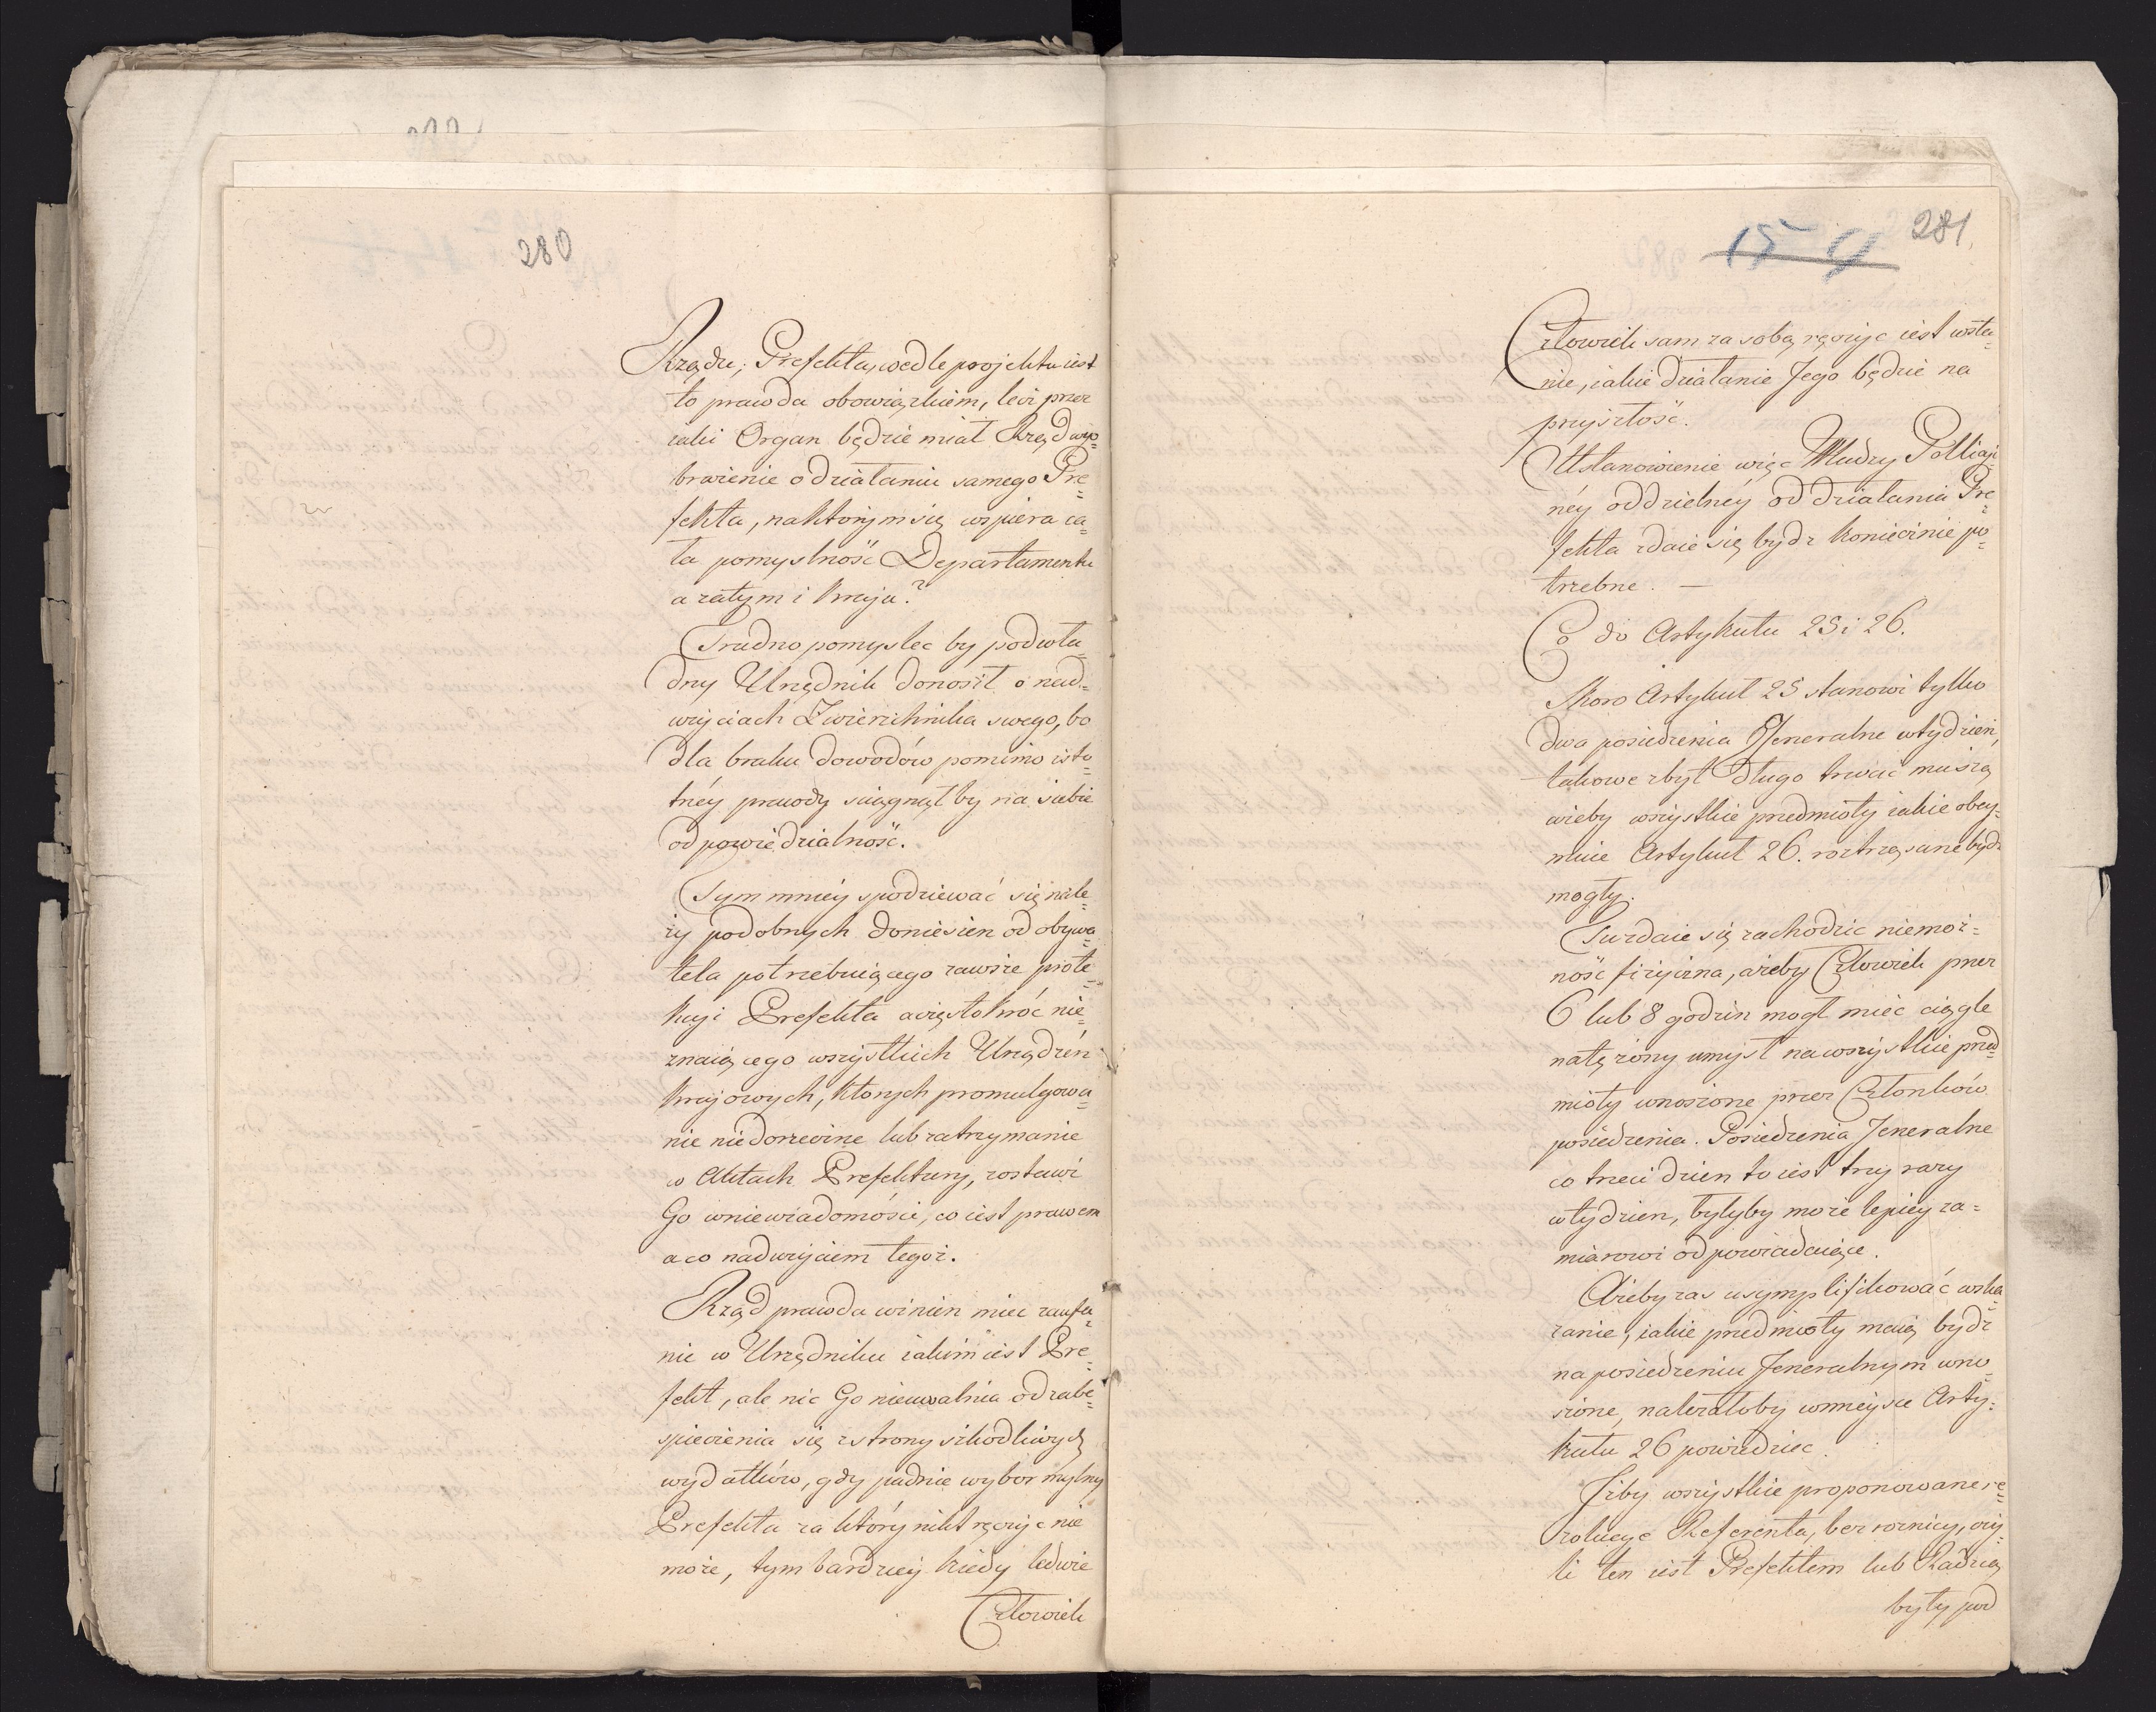 280
Rządu; Prefekta, wedle projektu iest
to prawda obowiązkiem, lecz przez
iaki Organ będzie miał Rząd wyo=
brażenie o działaniu samego Pre=
fekta, na którym się wspiera ca=
ła pomyslność Departamentu
a zatym i kraju?
Trudno pomyslec by podwła=
dny Urzędnik donosił o nad=
użyciach Zwierzchnika swego, bo
dla braku dowodów pomimo isto=
tnéy prawdy sciągnął by na siebie
odpowiedzialność.
Tym mniéy spodziewać się nale=
ży podobnych doniesien od obywa=
tela potrzebuiącego zawsze prote=
kcyi Prefekta a częstokroć nie=
znaiącego wszystkich Urządzén
krajowych, ktorych promulgowa=
nie niedorzeczne lub zatrzymanie
w Aktach Prefektury, zostawi
Go w niewiadomości, co iest prawem
a co nadużyciem tegoż.
Rząd prawda winien miec zaufa=
nie w Urzędniku iakim iest Pre=
fekt, ale nic Go nieuwalnia od zabe=
spieczenia się z strony szkodliwych
wydatków, gdy padnie wybor mylny
Prefekta za który nikt ręczyc nie
może, tym bardziey kiedy ledwie
Człowiek
281
15 9
Człowiek sam za sobą ręczyc iest wsta=
nie, iakie działanie Jego będzie na
przyszłość.
Ustanowienie więc Władzy Pollicyi=
néy oddzielnéy od działania Pre=
fekta zdaie się bydz koniecznie po=
trzebne. —
Co do Artykułu 25 i 26.
Skoro Artykuł 25 stanowi tylko
dwa posiedzenia Jeneralne w tydzien,
takowe zbyt długo trwać muszą
ażeby wszystkie przedmioty iakie obey=
muie Artykuł 26. roztrząsane bydz
mogły.
Tu zdaie się zachodzic niemoż=
ność fizyczna, ażeby Człowiek przez
6 lub 8 godzin mogł mieć ciągle
natężony umysł na wszystkie przed=
mioty wnoszone przez Członków
posiedzenia. Posiedzenia Jeneralne
co trzeci dzien to iest trzy razy
w tydzien, byłyby może lepiey za=
miarowi odpowiadaiące.
Ażeby zas usymplifikować wska=
zanie, iakie przedmioty maią bydz
na posiedzeniu Jeneralnym wno=
szone, należałoby w mieysce Arty=
kułu 26 powiedziec.
Iżby wszystkie proponowane re=
zolucye Referenta, bez roznicy, czy=
li ten iest Prefektem lub Radzcą
były pod